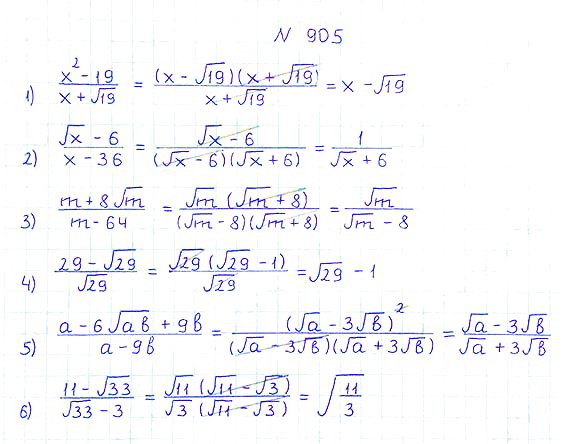 N 905
1) (x² - 19)/(x + √19) = ((x - √19)(x + √19))/(x + √19) = x - √19
2) (√x - 6)/(x - 36) = (√x - 6)/((√x - 6)(√x + 6)) = 1/(√x + 6)
3) (m + 8√m)/(m - 64) = (√m (√m + 8))/((√m - 8)(√m + 8)) = √m/(√m - 8)
4) (29 - √29)/√29 = (√29 (√29 - 1))/√29 = √29 - 1
5) (a - 6√(ab) + 9b)/(a - 9b) = (√a - 3√b)²/((√a - 3√b)(√a + 3√b)) = (√a - 3√b)/(√a + 3√b)
6) (11 - √33)/(√33 - 3) = (√11 (√11 - √3))/(√3 (√11 - √3)) = √(11/3)